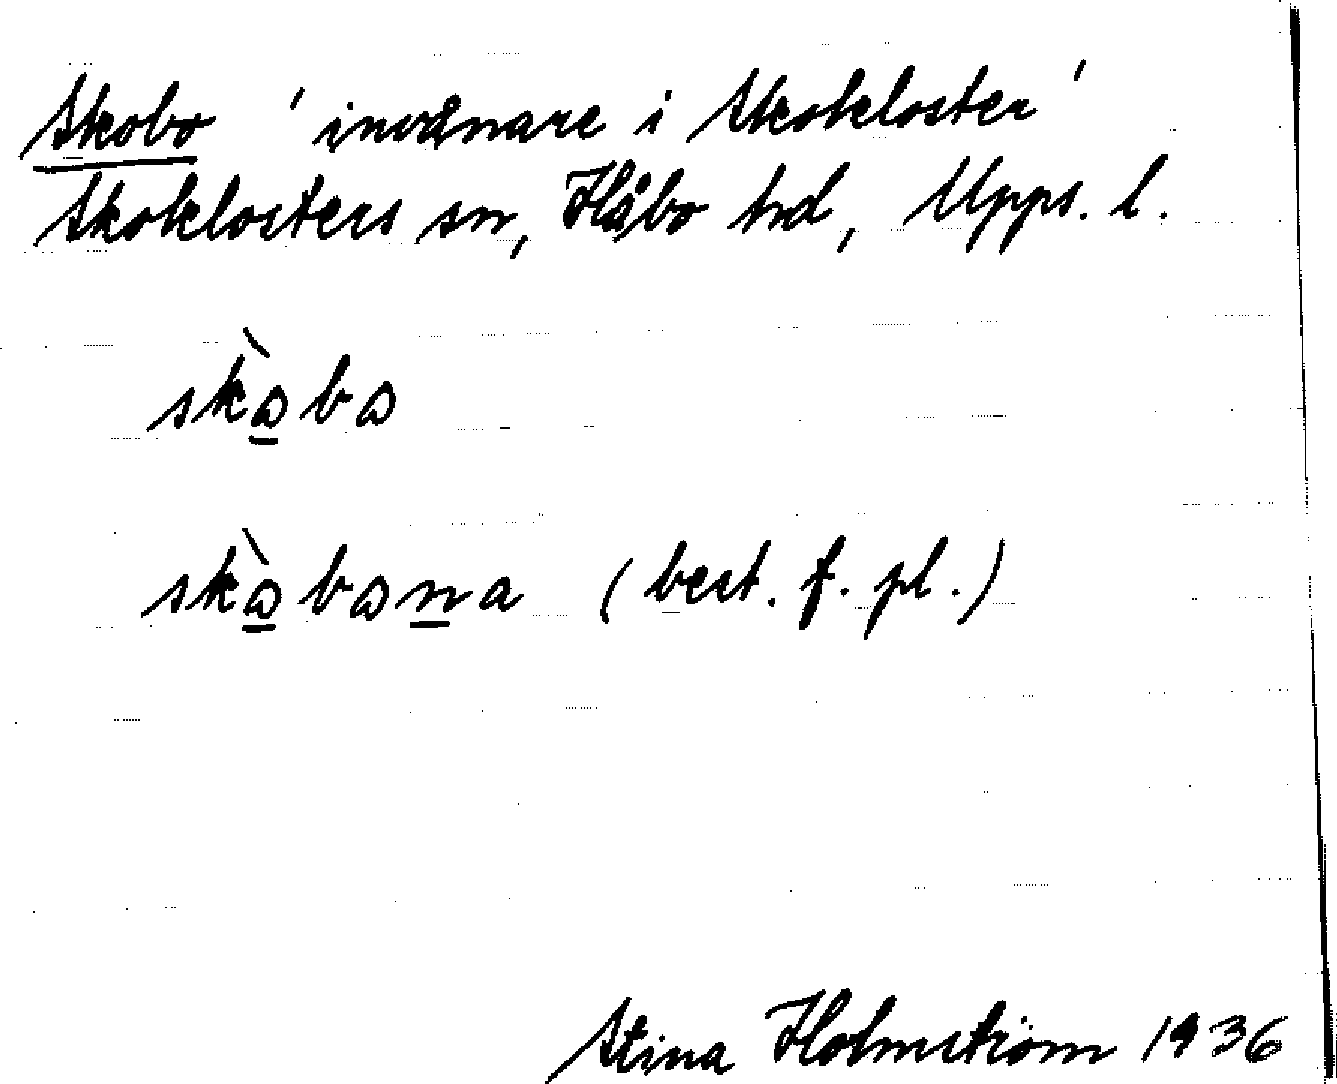 Skobo 'invånare i Skokloster'
Skoklosters sn, Håbo hd, Upps. l.
skὼbω
skὼbωna (best. f. pl.)
Stina Holmström 1936